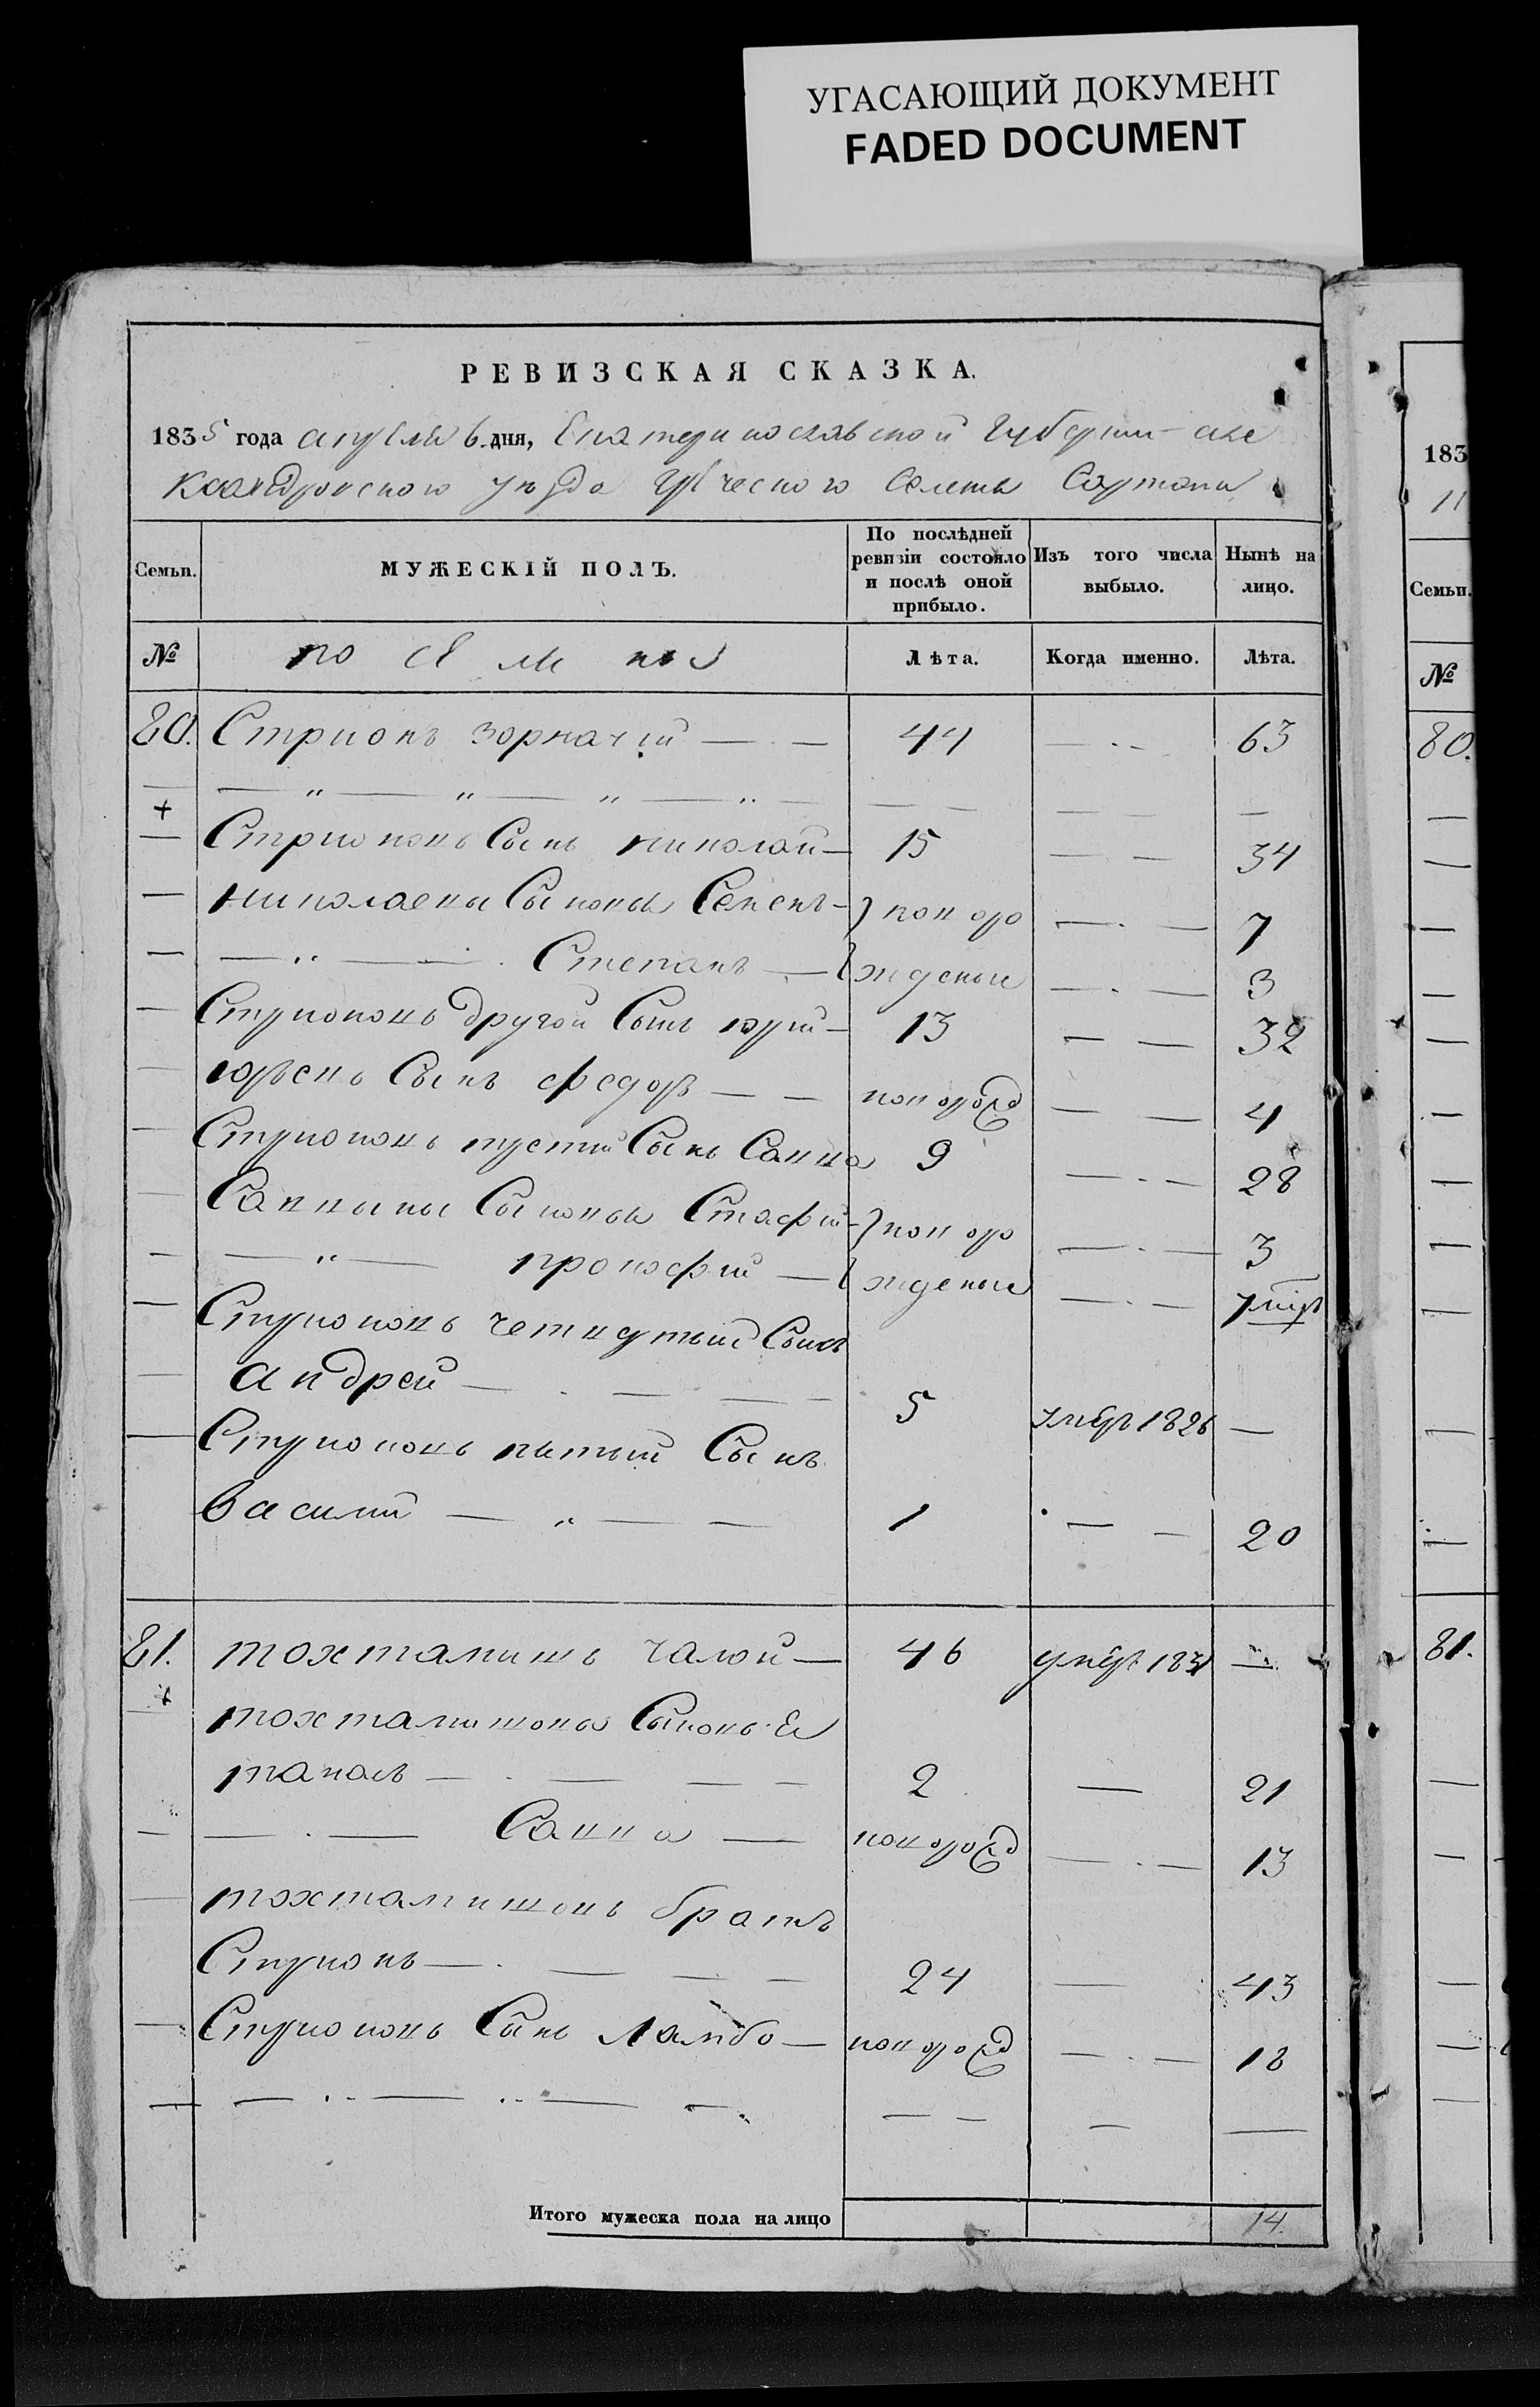 УГАСАЮЩИЙ ДОКУМЕНТ
FADED DOCUMENT
РЕВИЗСКАЯ СКАЗКА.
1835 года апреля 6 дня, Екатеринославской Губернии але
ксандровского уезда Греческого Селения Сартаны
Семьи.
МУЖЕСКІЙ ПОЛЪ.
По послѣдней ревизіи состояло и послѣ оной прибыло.
Изъ того числа выбыло.
Нынѣ на лицо.
№
Лѣта.
Когда именно.
Лѣта.
80. Стрионъ зорначій 44 63
Стрионовъ Сынъ николай 15 34
николаевы Сыновья Семенъ новоро 7
Степанъ жденые 3
Стрионовъ другой Сынъ юрій 13 32
юрьевъ Сынъ федоръ новорожд 4
Стрионовъ третий Сынъ Савва 9 28
Саввины Сыновья Стафій новоро 3
прокофий жденые 1/2
Стрионовъ четвертый Сынъ
андрей 5 умеръ 1826
Стрионовъ пятый Сынъ
василий 1 20
81. тохтамишъ чалой 46 умеръ 1831
тохтамишовы Сыновья
2 21
Савва новорожд 13
тохтамишовъ братъ
Стрионъ 24 43
Стрионовъ Сынъ Ламбо новорожд 18
Итого мужеска пола на лицо 14.
183
11
Семьи.
№
80.
81.